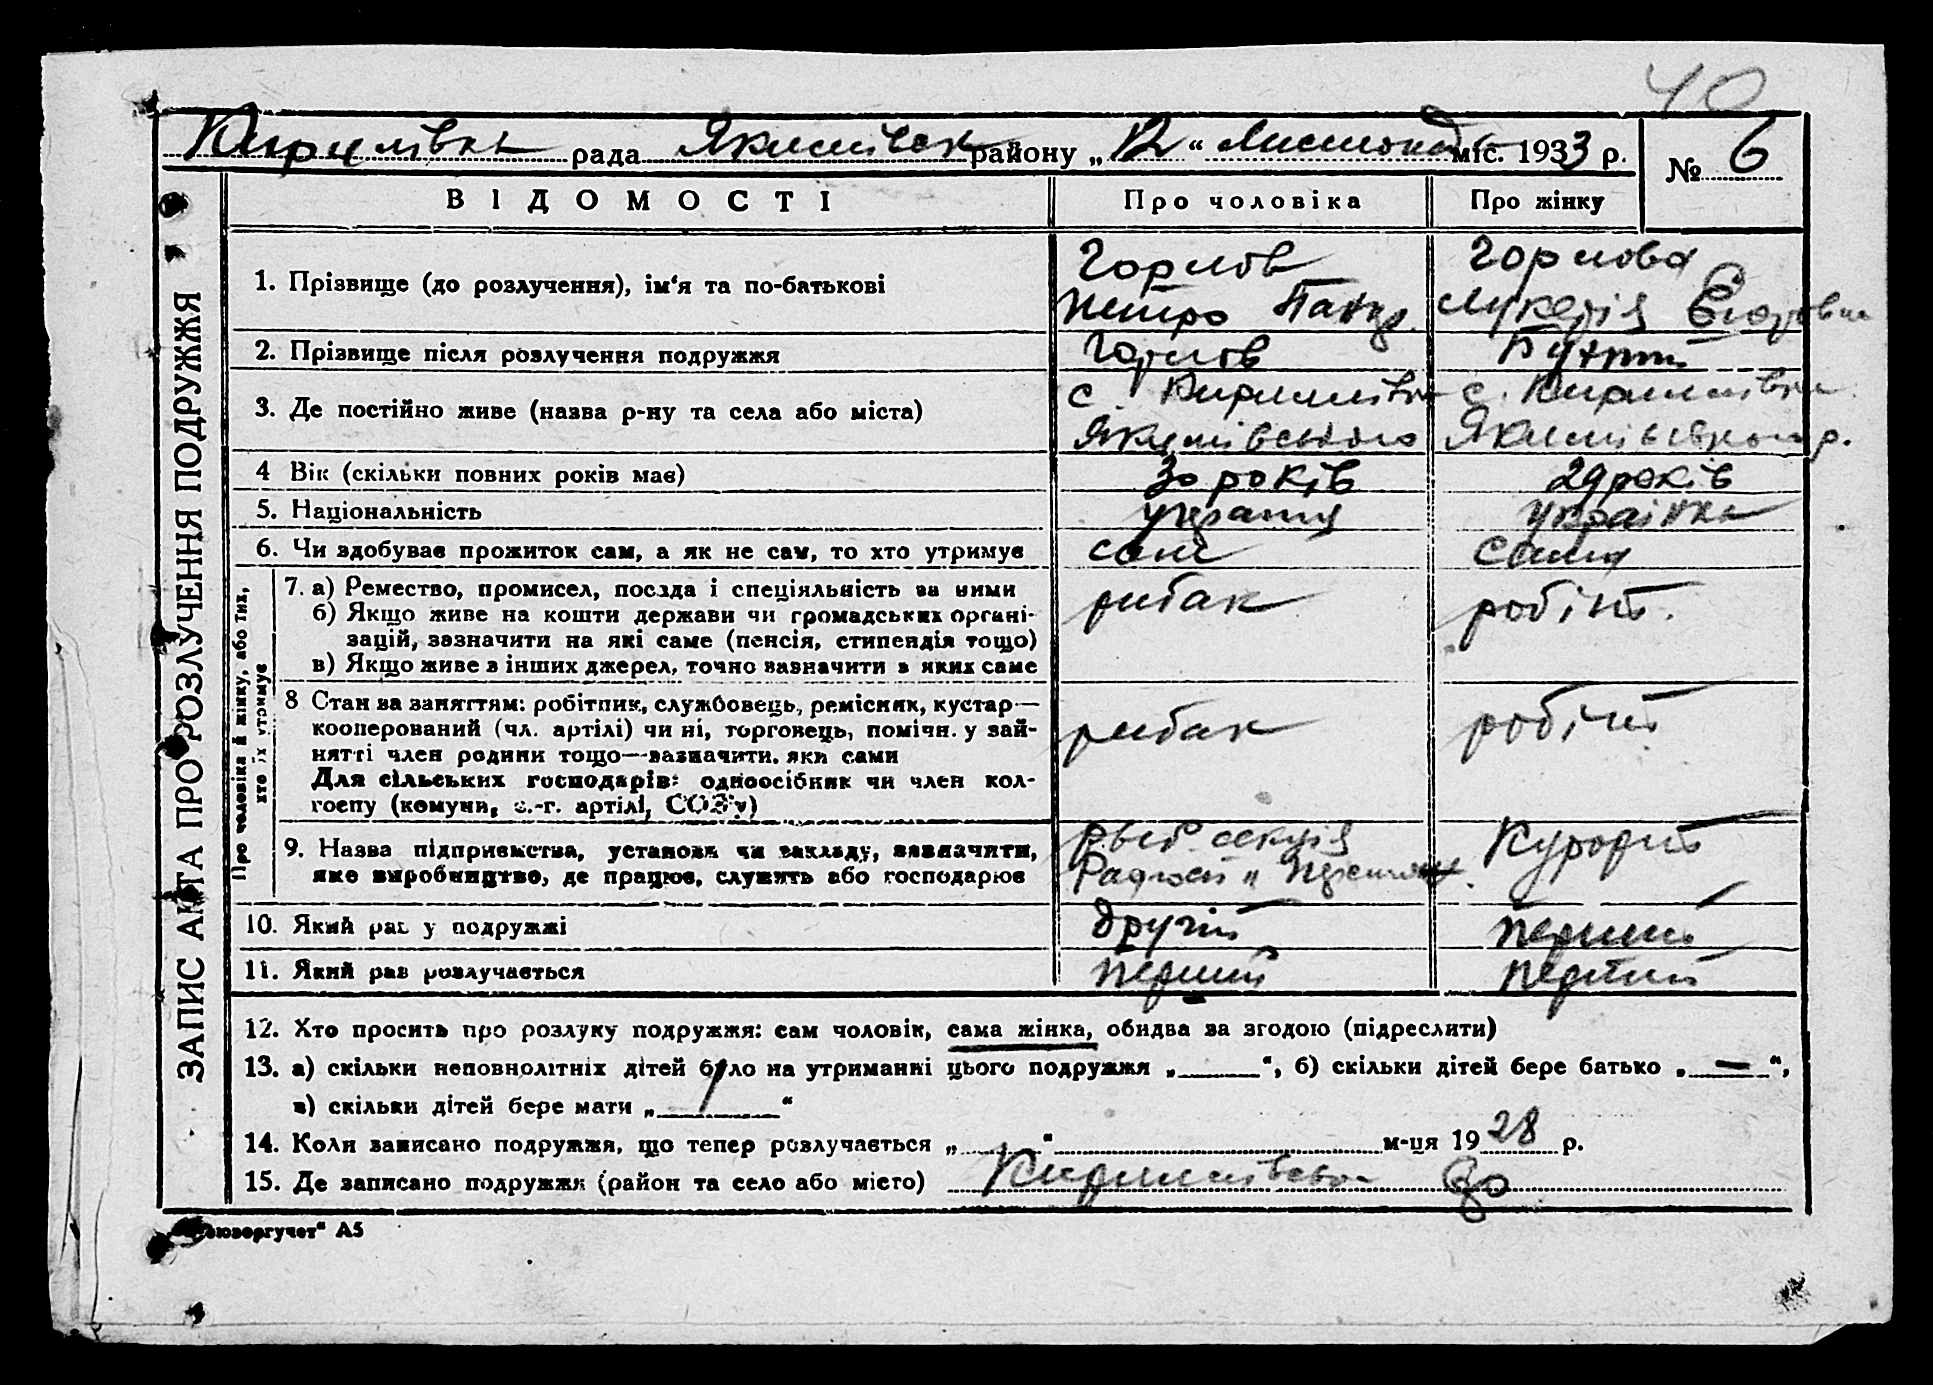 40
Кирилівка рада Якимівськ району „12“ Листопад міс. 1933 р. № 6
ЗАПИС АКТА ПРО РОЗЛУЧЕННЯ ПОДРУЖЖЯ
ВІДОМОСТІ Про чоловіка Про жінку
1. Прізвище (до розлучення), ім'я та по-батькові
Горлов Горлова
Петро Лукерія Єгоровна
2. Прізвище після розлучення подружжя Горлов
3. Де постійно живе (назва р-ну та села або міста)
с. Кирилівка с. Кирилівка
Якимівського Якимівського р.
4 Вік (скільки повних років має) 30 років 29 років
5. Національність українц українка
6. Чи здобуває прожиток сам, а як не сам, то хто утримує сам сама
Про чоловіка й жінку, або тих, хто їх утримує
7. а) Ремество, промисел, посада і спеціяльність за ними рибак робітн.
б) Якщо живе на кошти держави чи громадських органі-
зацій, зазначити на які саме (пенсія, стипендія тощо)
в) Якщо живе з інших джерел, точно зазначити з яких саме
8 Стан за заняттям: робітник, службовець, ремісник, кустар—
кооперований (чл. артілі) чи ні, торговець, помічн. у зай- рибак робітн
нятті член родини тощо—зазначити, яки сами
Для сільських господарів: одноосібник чи член кол-
госпу (комуни, с.-г. артілі, СОЗу)
9. Назва підприємства, установи чи закладу, зазначити, рыб. секція Курорт
яке виробництво, де працює, служить або господарює
10. Який раз у подружжі другій первий
11. Який раз розлучається первий первий
12. Хто просить про розлуку подружжя: сам чоловік, сама жінка, обидва за згодою (підреслити)
13. а) скільки неповнолітніх дітей було на утриманні цього подружжя „ “, б) скільки дітей бере батько „ — “,
в) скільки дітей бере мати „ 1 “
14. Коли записано подружжя, що тепер розлучається „ “ м-ця 1928 р.
15. Де записано подружжя (район та село або місто)
„Союзоргучет“ А5